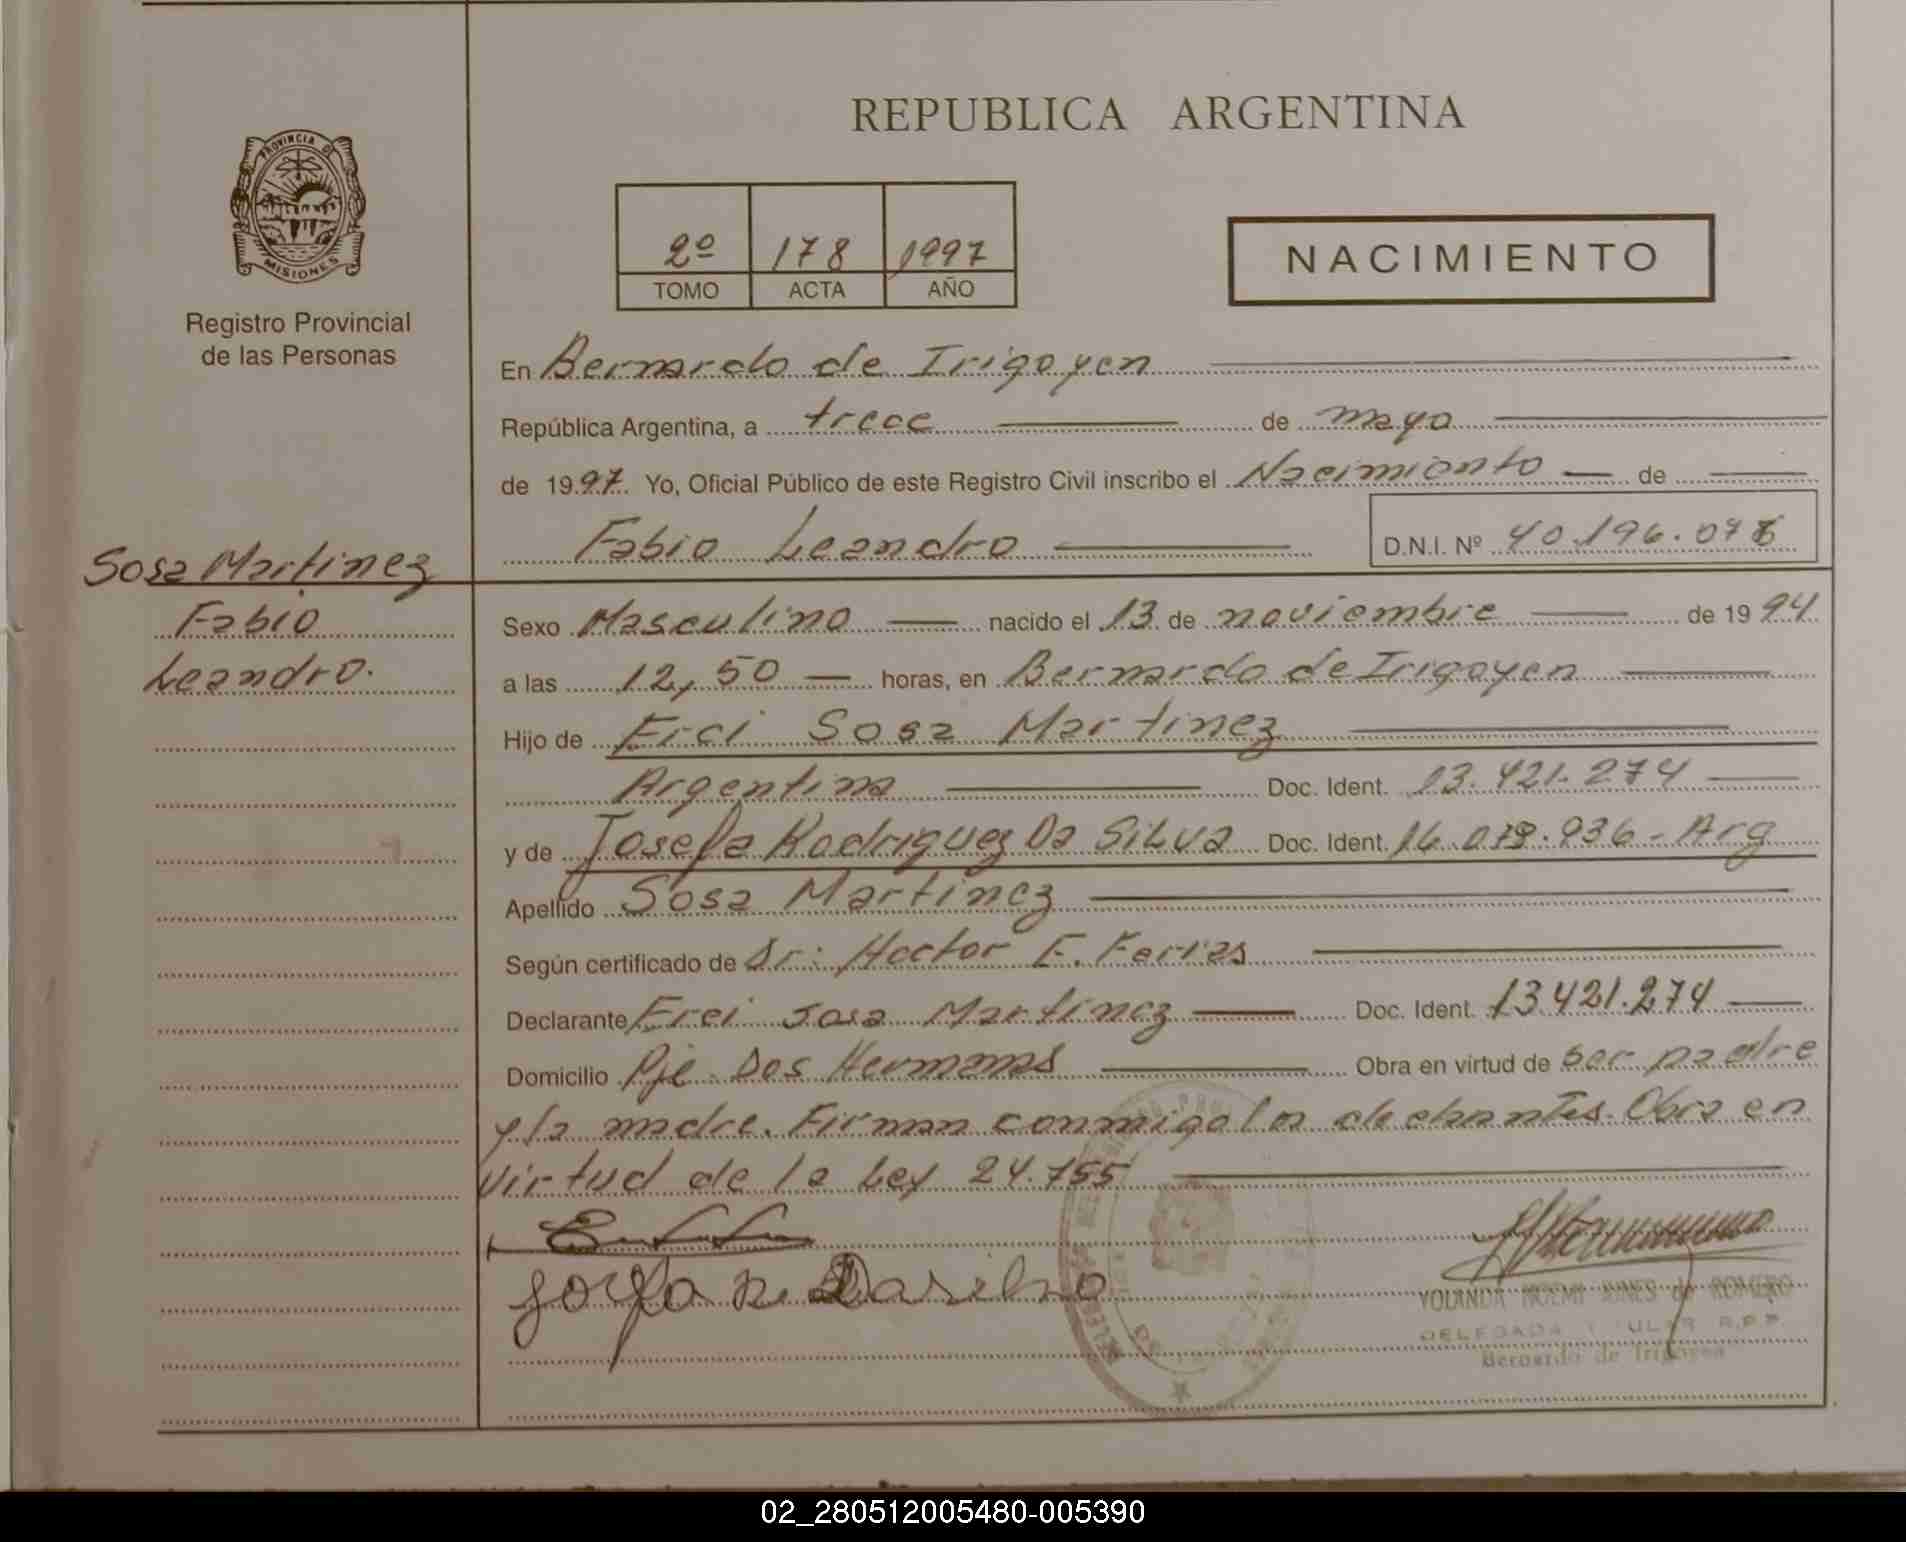 REPUBLICA ARGENTINA
PROVINCIA DE
MISIONES
Registro Provincial
de las Personas
2º 178 1997
TOMO ACTA AÑO
NACIMIENTO
En Bernardo de Irigoyen
República Argentina, a trece de mayo
de 1997. Yo, Oficial Público de este Registro Civil inscribo el Nacimiento de
Fabio Leandro D.N.I. Nº 40.196.076
Sosa Martinez
Fabio
Leandro.
Sexo Masculino nacido el 13 de noviembre de 1994
a las 12,50 horas, en Bernardo de Irigoyen
Hijo de Erci Sosa Martinez
Argentina Doc. Ident. 13.421.274
y de Josefa Rodriguez Da Silva Doc. Ident. 16.019.936 - Arg
Apellido Sosa Martinez
Según certificado de Dr: Hector E. Ferias
Declarante Erci Sosa Martinez Doc. Ident. 13.421.274
Domicilio Pje Dos Hermanas Obra en virtud de ser padre
y la madre. Firman conmigo los declarantes. Obra en
virtud de la Ley 24.755
YOLANDA NOEMI de ROMERO
DELEGADA TITULAR R.P.P.
Bernardo de Irigoyen
02_280512005480-005390